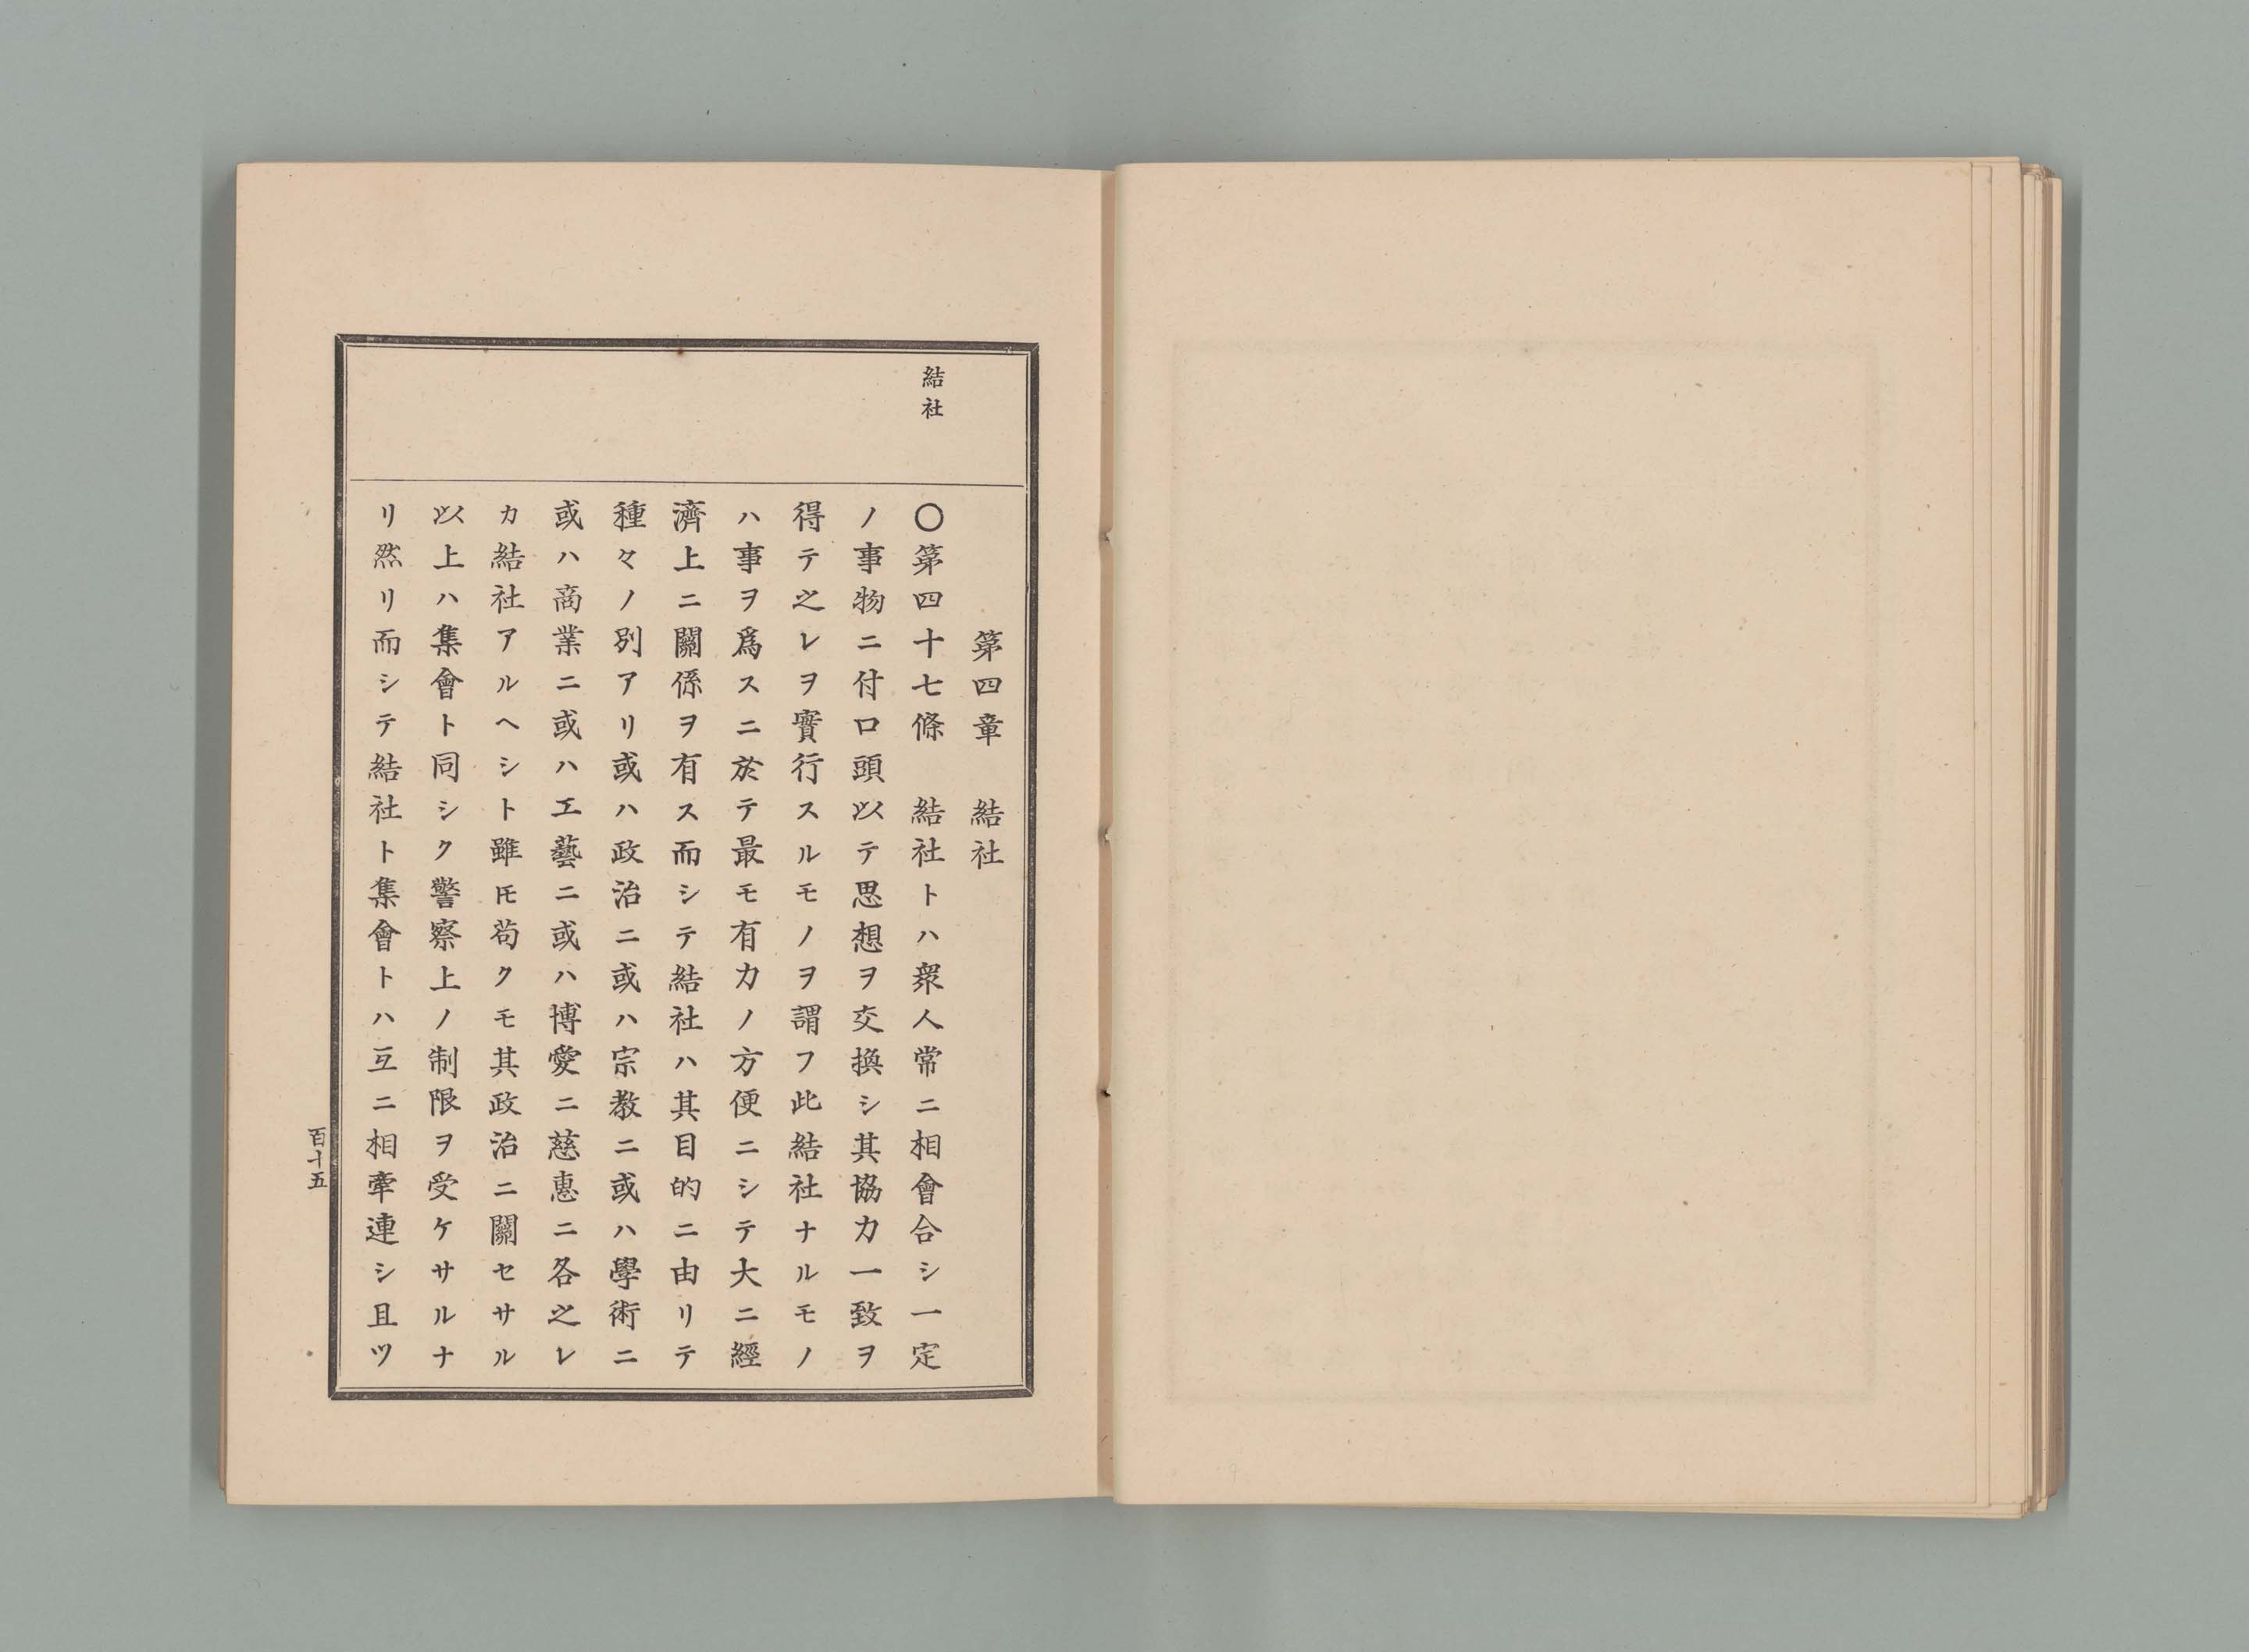 結社
第四章　結社
〇第四十七條　結社トハ衆人常ニ相會合シ一定
ノ事物ニ付口頭以テ思想ヲ交換シ其協力一致ヲ
得テ之レヲ實行スルモノヲ謂フ此結社ナルモノ
ハ事ヲ爲スニ於テ最モ有力ノ方便ニシテ大ニ經
濟上ニ關係ヲ有ス而シテ結社ハ其目的ニ由リテ
種々ノ別アリ或ハ政治ニ或ハ宗教ニ或ハ學術ニ
或ハ商業ニ或ハ工藝ニ或ハ博愛ニ慈惠ニ各之レ
カ結社アルヘシト雖𪜈苟クモ其政治ニ關セサル
以上ハ集會ト同シク警察上ノ制限ヲ受ケサルナ
リ然リ而シテ結社ト集會トハ互ニ相牽連シ且ツ
百十五